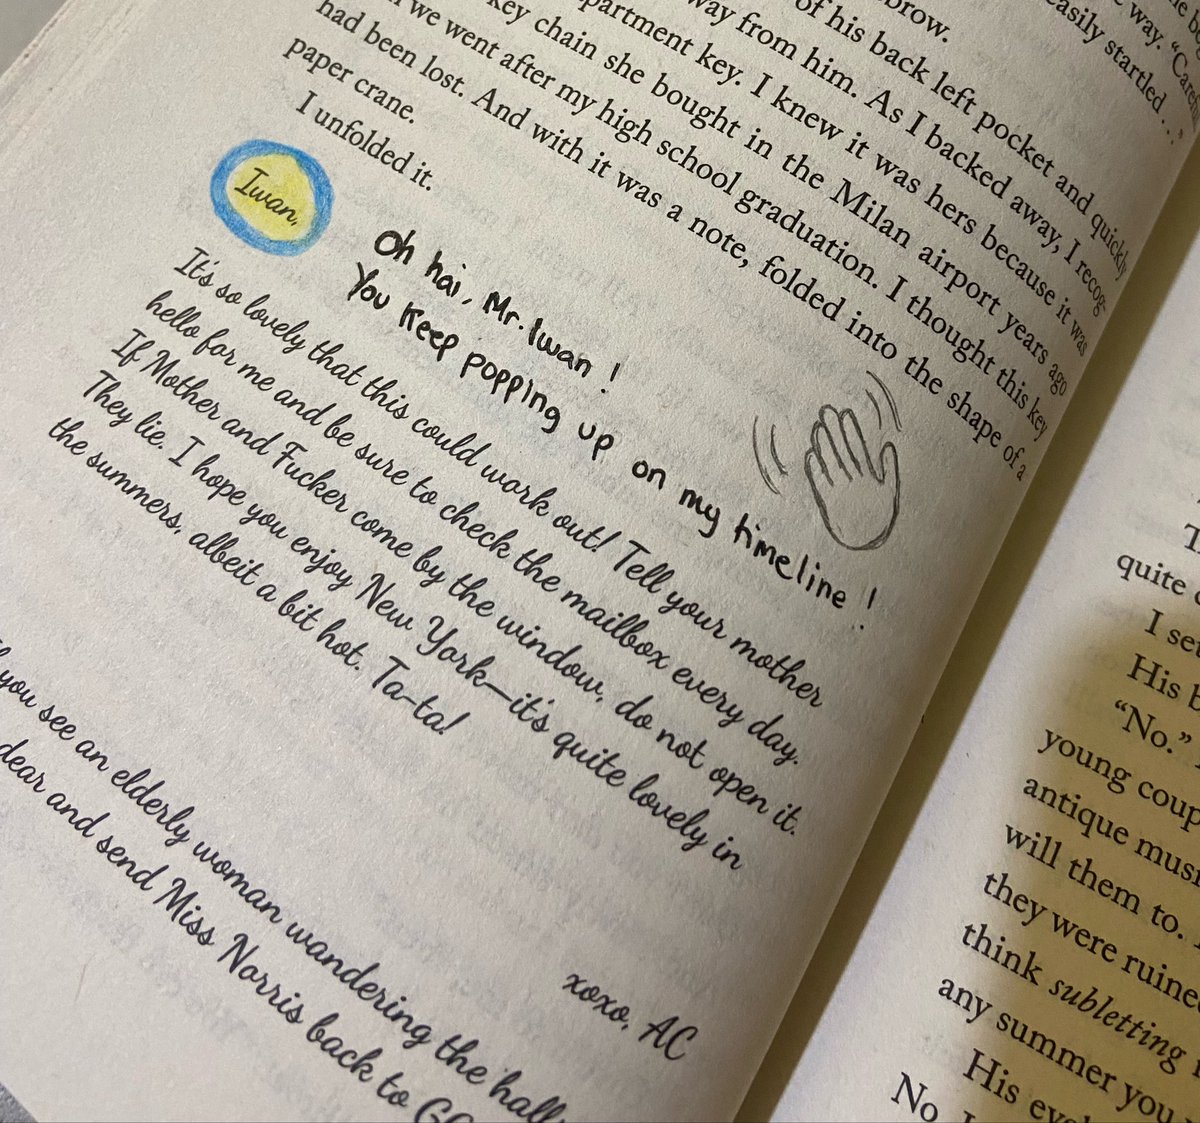 easily startled . . .”
way. “Cared
brow.
of his back left pocket and quickly
way from him. As I backed away, I recog-
partment key. I knew it was hers because it was
key chain she bought in the Milan airport years ago
we went after my high school graduation. I thought this key
had been lost. And with it was a note, folded into the shape of a
paper crane.
I unfolded it.
Iwan,
Oh hai, Mr. Iwan !
You keep popping up on my timeline !
It's so lovely that this could work out! Tell your mother
hello for me and be sure to check the mailbox every day.
If Mother and Fucker come by the window, do not open it.
They lie. I hope you enjoy New York—it's quite lovely in
the summers, albeit a bit hot. Ta-ta!
xoxo, AC
you see an elderly woman wandering the hall
dear and send Miss Norris back to G
quite
I set
His b
“No.”
young coup
antique musi
will them to.
they were ruine
think subletting
any summer you
His eye
No